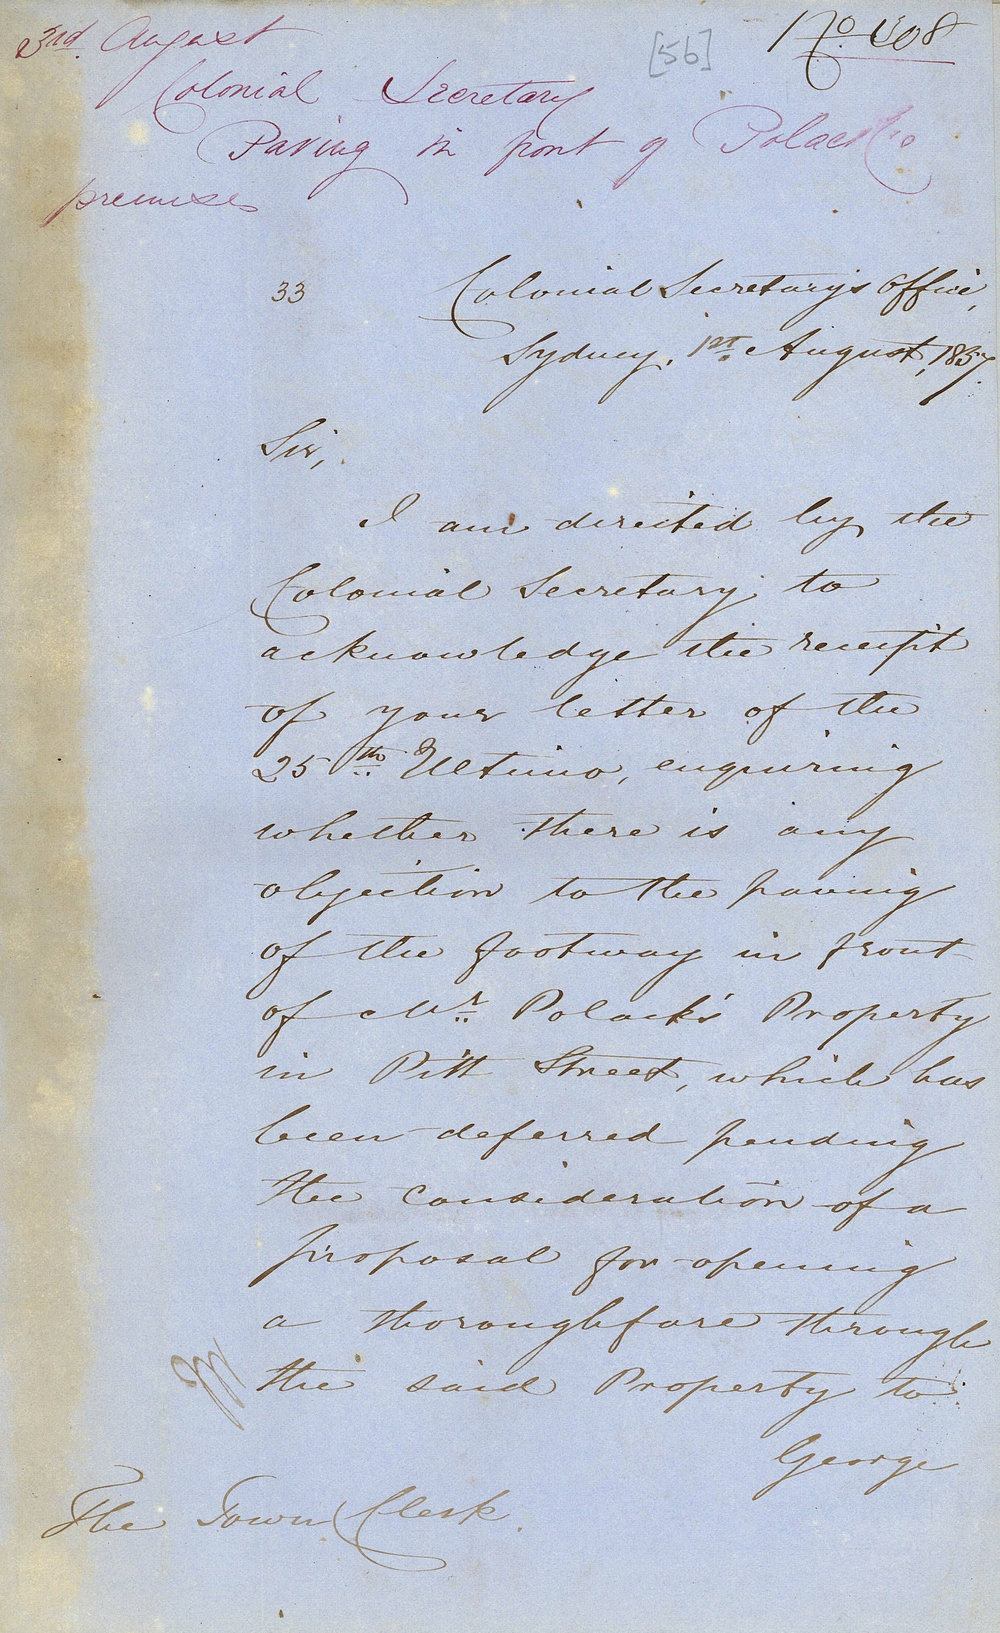 3rd. August
[56]
No. 808
Colonial Secretary
Paving in front of Polack's
premises
33
Colonial Secretary's Office,
Sydney, 1st. August, 1857.
Sir,
I am directed by the
Colonial Secretary to
acknowledge the receipt
of your letter of the
25th Ultimo, enquiring
whether there is any
objection to the paving
of the footway in front
of Mr. Polack's Property
in Pitt Street, which has
been deferred pending
the consideration of a
proposal for opening
a thoroughfare through
the said Property to
George
The Town Clerk.